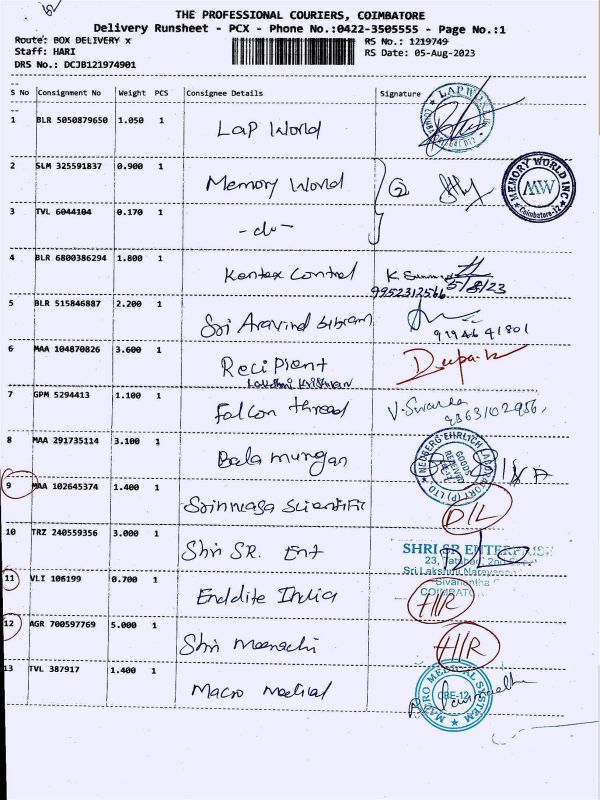 THE PROFESSIONAL COURIERS, COIMBATORE
Delivery Runsheet - PCX - Phone No.:0422-3505555 - Page No.:1
Route: BOX DELIVERY x RS No.: 1219749
Staff: HARI RS Date: 05-Aug-2023
DRS No.: DCJB121974901
S No Consignment No Weight PCS Consignee Details Signature
1 BLR 5050879650 1.050 1 Lap World
2 SLM 325591837 0.900 1 Memory World 2 MEMORY WORLD INC MW Coimbatore-12
3 TVL 6044104 0.170 1 -do-
4 BLR 6800386294 1.800 1 Kontex Control 5/8/23
9952312566
5 BLR 515846887 2.200 1 Sri Aravind
6 MAA 104870826 3.600 1 Recipient Deepak
7 GPM 5294413 1.100 1 Falcon thread
8 MAA 291735114 3.100 1 Bala murugan GOODS RECEIVED
9 MAA 102645374 1.400 1 D/L
10 TRZ 240559356 3.000 1 Shri SR. Ent SHRI SR ENTERPRISE
11 VLI 106199 0.700 1 Enddite India
12 AGR 700597769 5.000 1
13 TVL 387917 1.400 1 Macro Medical CBE-12